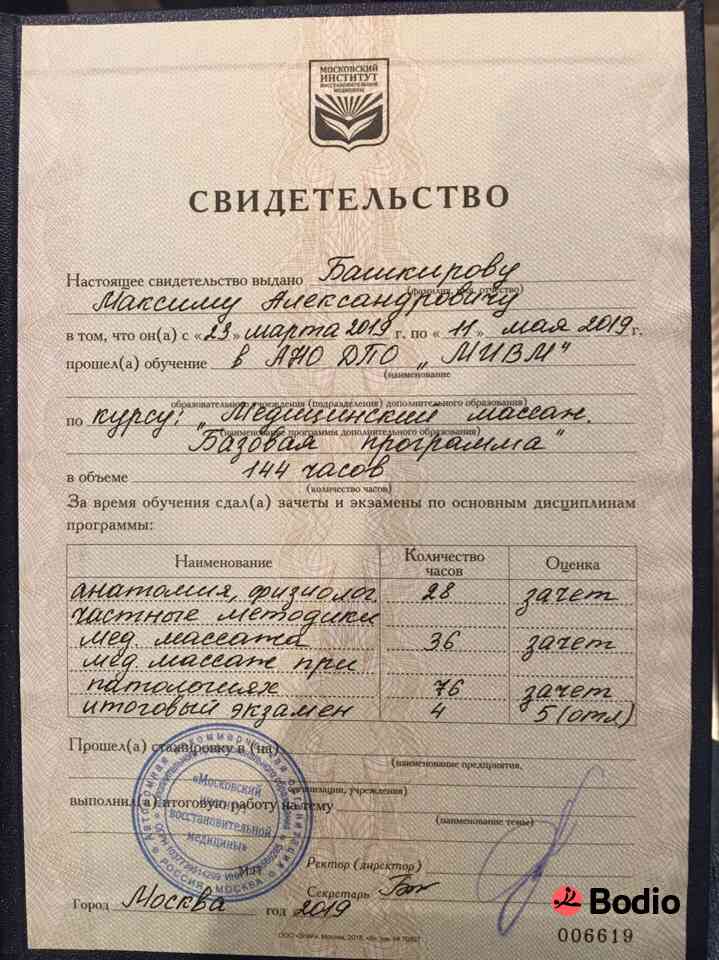 МОСКОВСКИЙ
ИНСТИТУТ
ВОССТАНОВИТЕЛЬНОЙ
МЕДИЦИНЫ
СВИДЕТЕЛЬСТВО
Настоящее свидетельство выдано Башкирову
(фамилия, имя, отчество)
Максиму Александровичу
в том, что он(а) с «23» марта 2019 г. по «11» мая 2019 г.
прошел(а) обучение в АНО ДПО „МИВМ"
(наименование
образовательного учреждения (подразделения) дополнительного образования)
по курсу: „Медицинский массаж.
(наименование программы дополнительного образования)
Базовая программа"
в объеме 144 часов
(количество часов)
За время обучения сдал(а) зачеты и экзамены по основным дисциплинам
программы:
Наименование Количество часов Оценка
анатомия, физиолог. 28 зачет
частные методики
мед. массажа 36 зачет
мед. массаж при
патологиях 76 зачет
итоговый экзамен 4 5 (отл)
Прошел(а) стажировку в (на)
(наименование предприятия,
организации, учреждения)
выполнил(а) итоговую работу на тему
(наименование темы)
«Московский
институт
восстановительной
медицины»
М.П.
Ректор (директор)
Секретарь
Город Москва год 2019
Bodio
006619